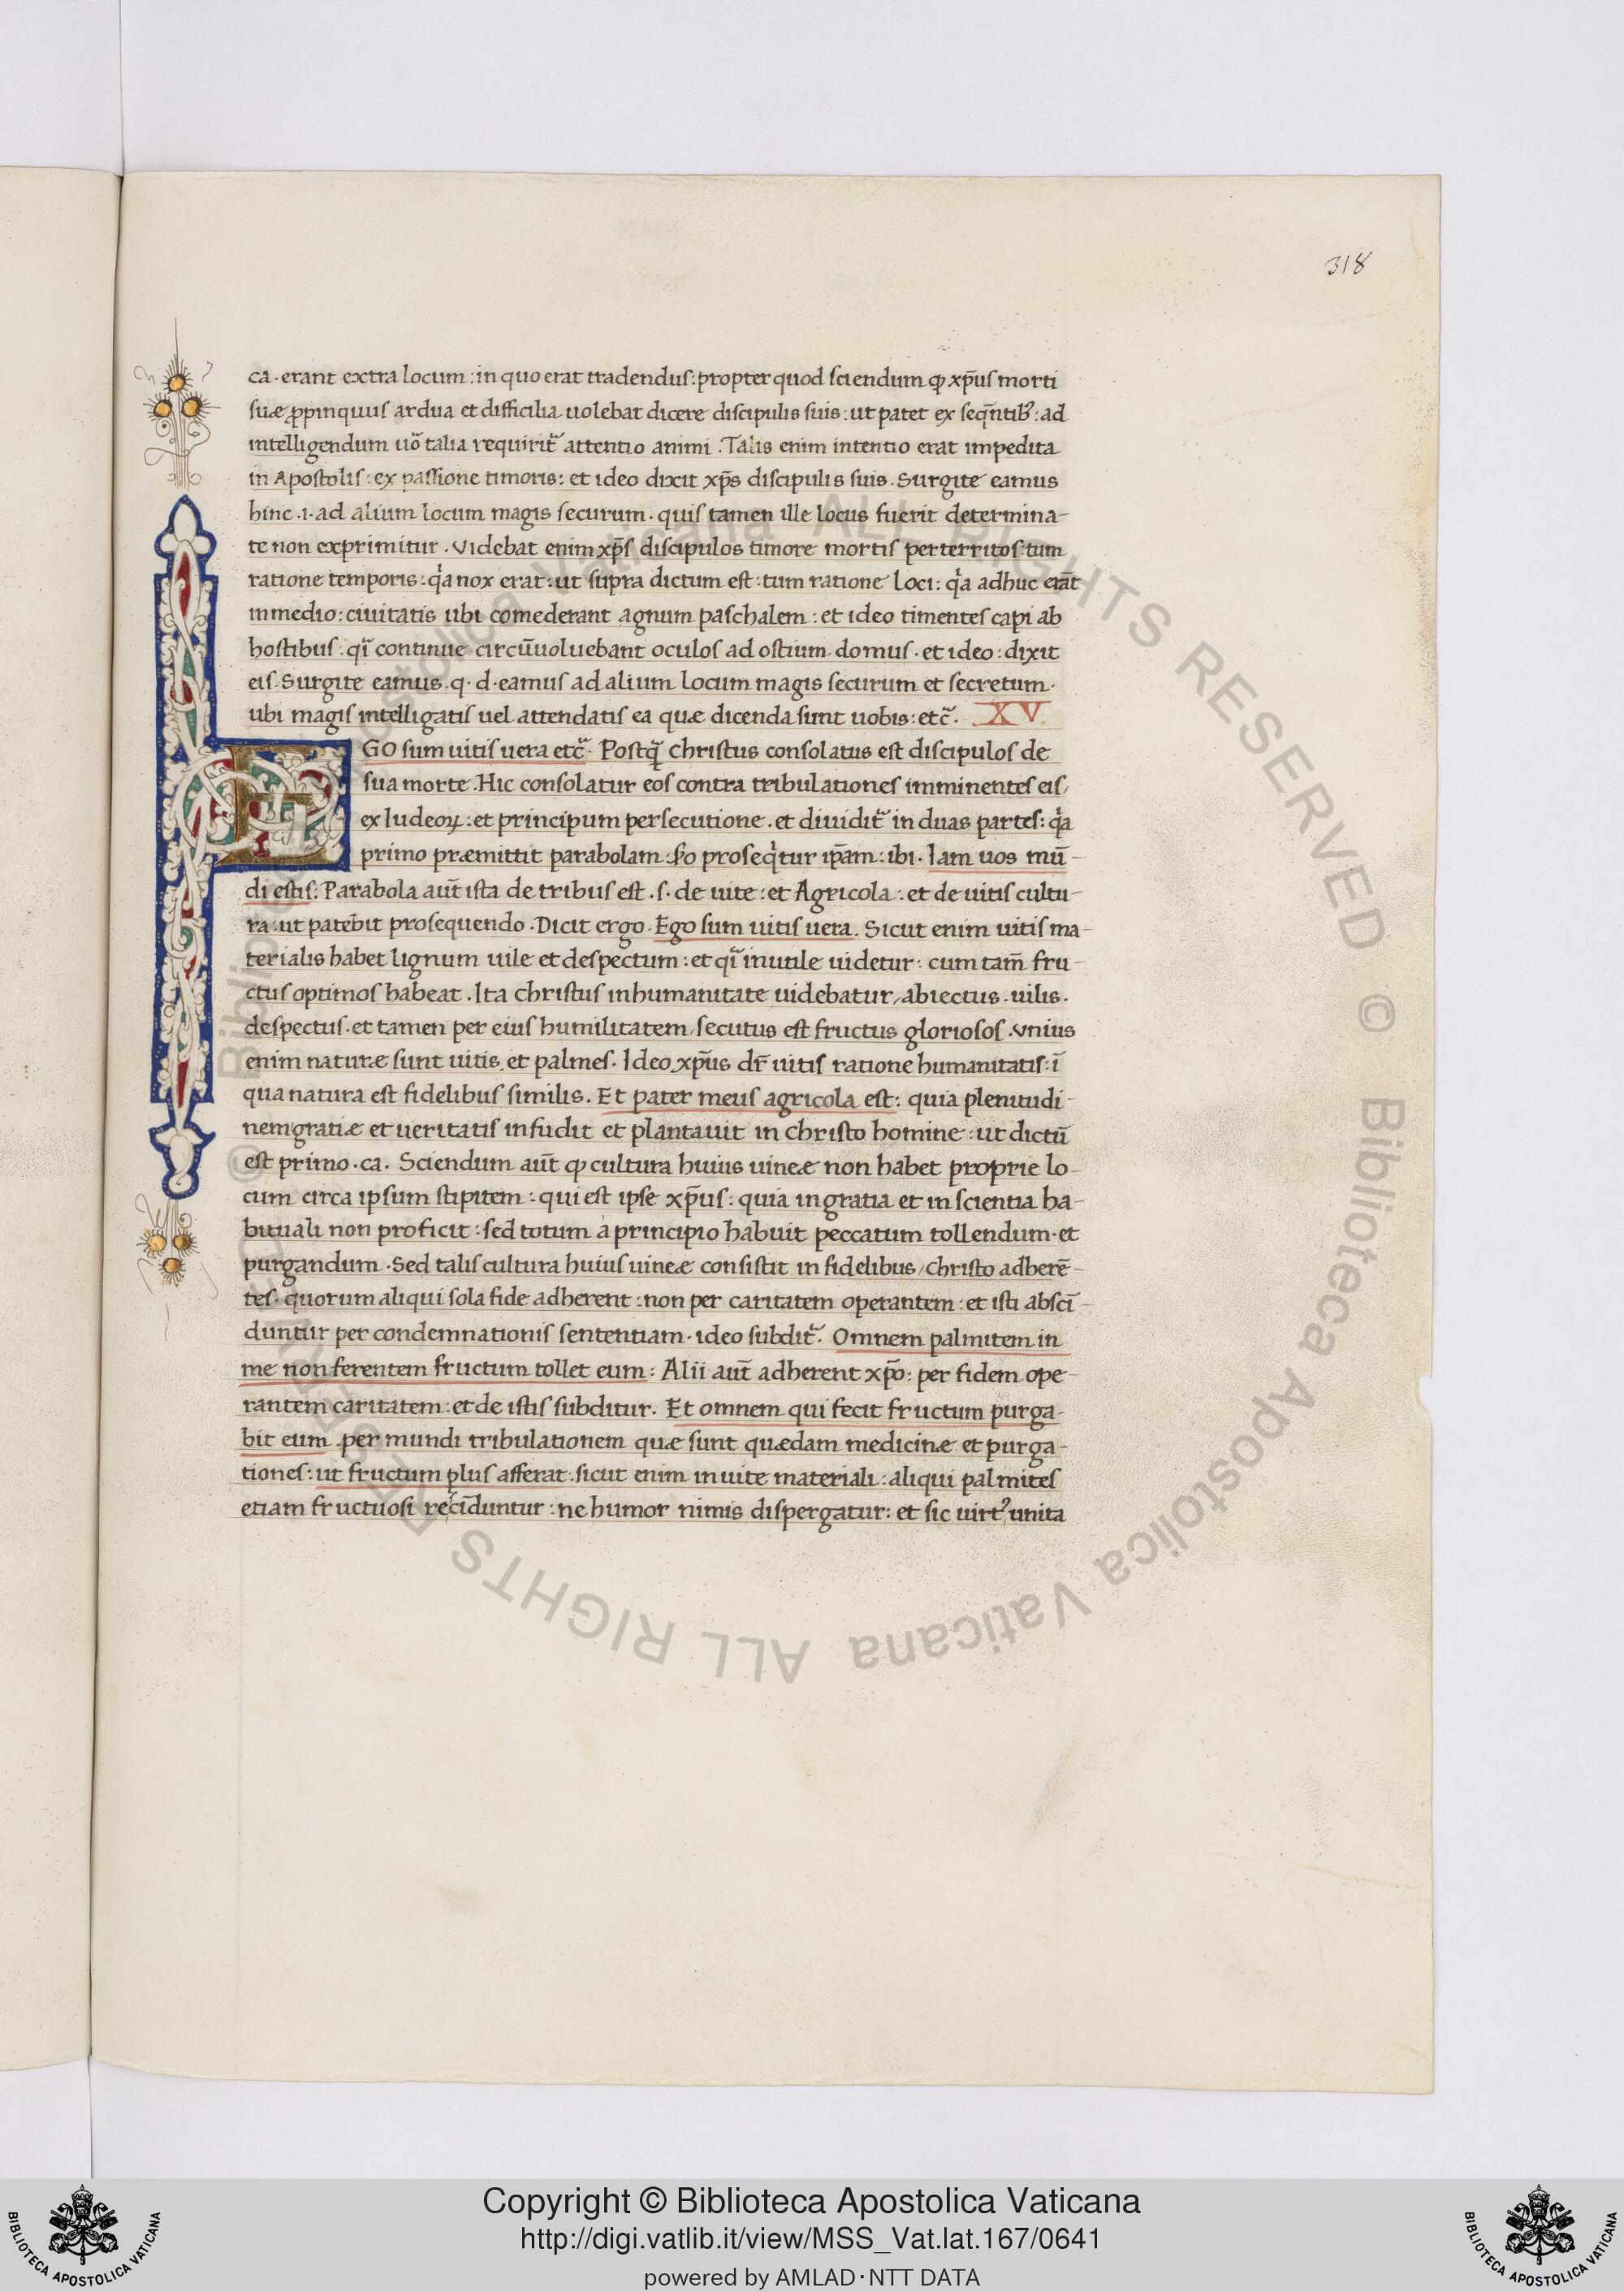 318
ca . erant extra locum : in quo erat tradendus : propter quod sciendum ꝙ xp̄us morti
suæ ꝓpinquus ardua et difficilia uolebat dicere discipulis suis : ut patet ex seq̄ntibꝰ : ad
intelligendum uo᷑ talia requirit᷑ attentio animi . Talis enim intentio erat impedita
in Apostolis : ex passione timoris : et ideo dixit xp̄s discipulis suis . Surgite eamus
hinc .i. ad alium locum magis securum . quis tamen ille locus fuerit determina-
te non exprimitur . Videbat enim xp̄s discipulos timore mortis perterritos : tum
ratione temporis : qͣa nox erat : ut supra dictum est : tum ratione loci : qͣa adhuc erāt
in medio : ciuitatis ubi comederant agnum paschalem : et ideo timentes capi ab
hostibus : qͣi continue circūuoluebant oculos ad ostium domus . et ideo : dixit
eis . Surgite eamus . q . d . eamus ad alium locum magis securum et secretum .
ubi magis intelligatis uel attendatis ea quæ dicenda sunt uobis : etc᷑ . XV.
EGO sum uitis uera etc᷑ . Postq̄ Christus consolatus est discipulos de
sua morte . Hic consolatur eos contra tribulationes imminentes eis /
ex Iudeoꝝ : et principum persecutione . et diuidit᷑ in duas partes : qͣa
primo præmittit parabolam : so proseqͥtur ip̄am : ibi . Iam uos mū-
di estis : Parabola aut̄ ista de tribus est . s . de uite : et Agricola : et de uitis cultu-
ra : ut patebit prosequendo . Dicit ergo . Ego sum uitis uera . Sicut enim uitis ma-
terialis habet lignum uile et despectum : et qͣi inutile uidetur : cum tam̄ fru-
ctus optimos habeat . Ita christus in humanitate uidebatur / abiectus . uilis .
despectus . et tamen per eius humilitatem / secutus est fructus gloriosos . Vnius
enim naturæ sunt uitis . et palmes . Ideo xp̄us dr̄ uitis ratione humanitatis : ī
qua natura est fidelibus similis . Et pater meus agricola est : quia plenitudi-
nem gratiæ et ueritatis infudit et plantauit in christo homine : ut dictū
est primo . ca . Sciendum aut̄ ꝙ cultura huius uineæ non habet proprie lo-
cum circa ipsum stipitem : qui est ipse xp̄us : quia in gratia et in scientia ha-
bituali non proficit : sed totum a principio habuit peccatum tollendum . et
purgandum . Sed talis cultura huius uineæ consistit in fidelibus / christo adherē-
tes . quorum aliqui sola fide adherent : non per caritatem operantem : et isti abscī-
duntur per condemnationis sententiam . ideo subdit᷑ . Omnem palmitem in
me non ferentem fructum tollet eum : Alii aut̄ adherent xp̄o : per fidem ope-
rantem caritatem : et de istis subditur . Et omnem qui fecit fructum purga-
bit eum . per mundi tribulationem quæ sunt quædam medicinæ et purga-
tiones : ut fructum plus afferat . sicut enim in uite materiali : aliqui palmites
etiam fructuosi reciduntur : ne humor nimis dispergatur : et sic uirtꝰ unita
© Biblioteca Apostolica Vaticana ALL RIGHTS RESERVED © Biblioteca Apostolica Vaticana ALL RIGHTS RESERVED
Copyright © Biblioteca Apostolica Vaticana
http://digi.vatlib.it/view/MSS_Vat.lat.167/0641
powered by AMLAD・NTT DATA
BIBLIOTECA APOSTOLICA VATICANA
BIBLIOTECA APOSTOLICA VATICANA